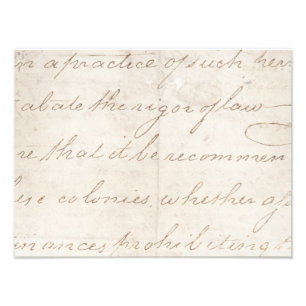 n a practice of such hei
abate the rigor of law
re that it be recommen
ese colonies, whether of
inances prohibiting t